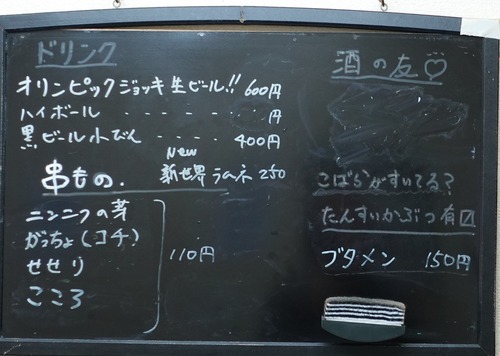 ドリンク
オリンピックジョッキ生ビール!! 600円
ハイボール - - - - - 円
黒ビール小びん - - - - 400円
New
新世界ラムネ 250
串もの.
ニンニクの芽
がっちょ(コチ)
せせり
こころ
110円
酒の友♡
こばらがすいてる?
たんすいかぶつ有☑
ブタメン 150円